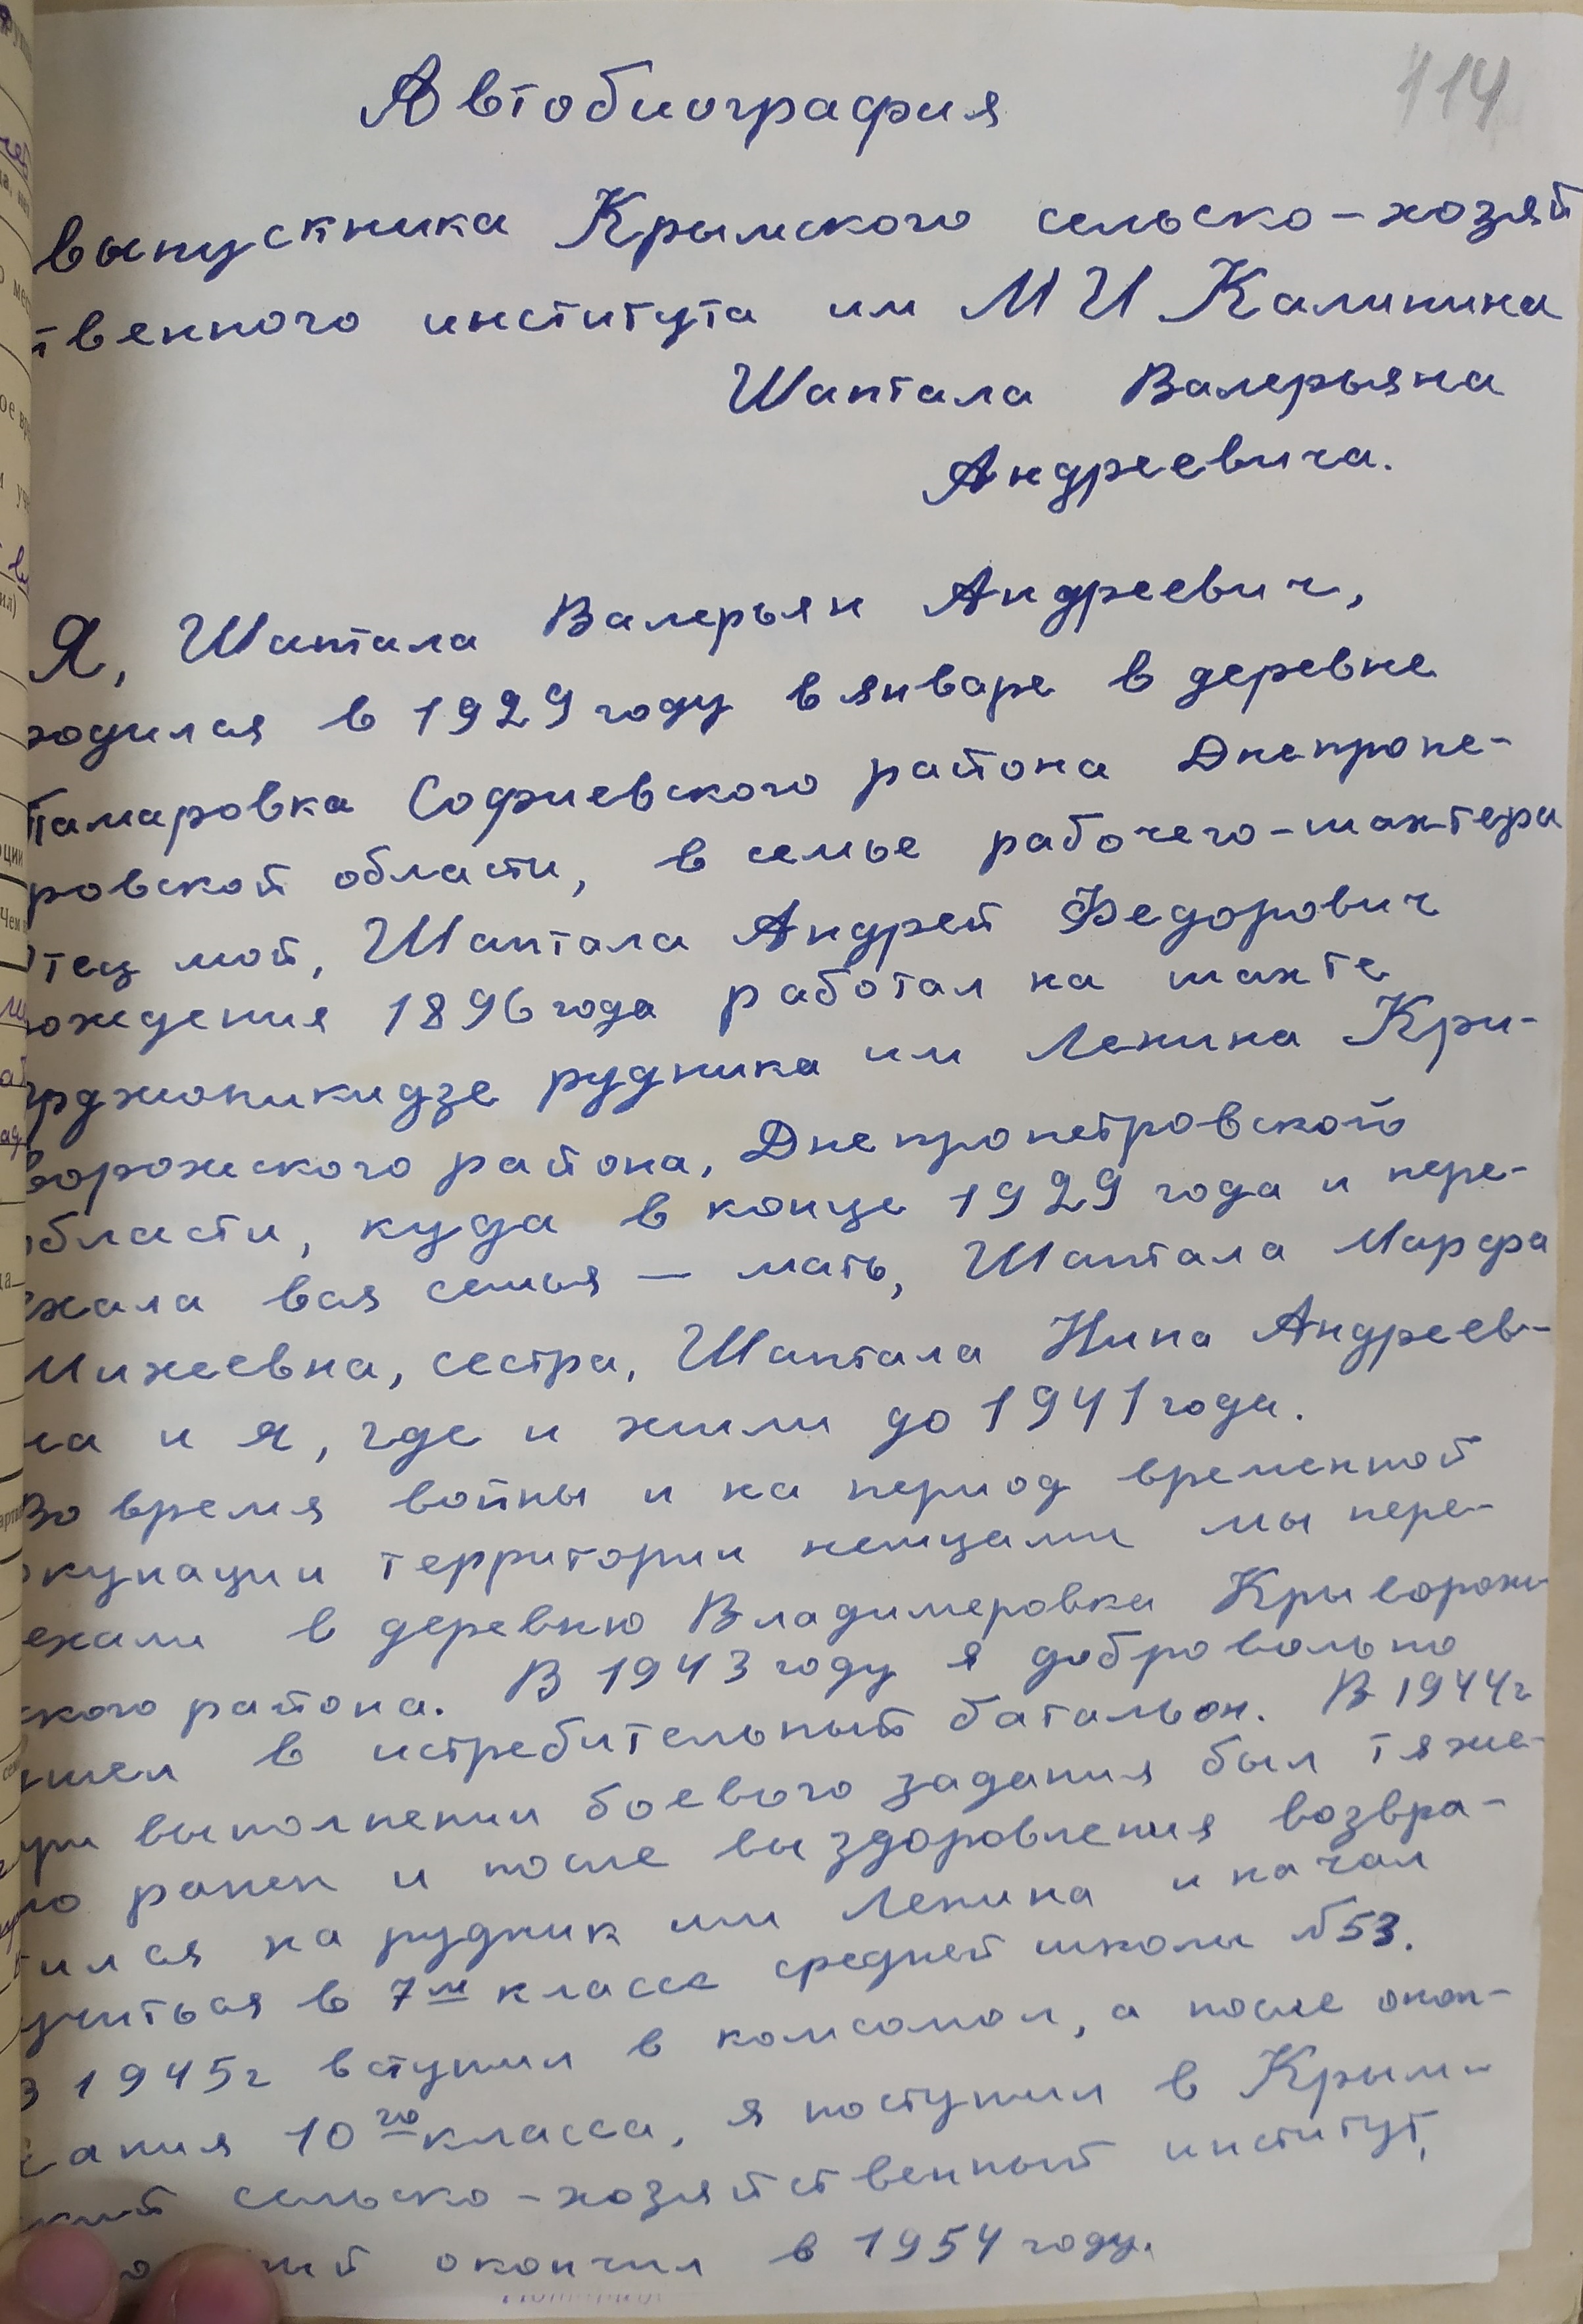 114
Автобиография
выпускника Крымского сельско-хозяй
твенного института им М И Калинина
Шаптала Валерьяна
Андреевича.
Я, Шаптала Валерьян Андреевич,
родился в 1929 году в январе в деревне
Тамаровка Софиевского района Днепропе-
ровской области, в семье рабочего-шахтера
Отец мой, Шаптала Андрей Федорович
рождения 1896 года работал на шахте
Орджоникидзе рудника им Ленина Кри-
ворожского района, Днепропетровской
области, куда в конце 1929 года и пере-
ехала вся семья — мать, Шаптала Марфа
Михеевна, сестра, Шаптала Нина Андреев-
на и я, где и жили до 1941 года.
Во время войны и на период временной
окупации территории немцами мы пере-
ехали в деревню Владимеровка Криворож-
ского района. В 1943 году я добровольно
пошел в истребительный батальон. В 1944г
при выполнении боевого задания был тяже-
ло ранен и после выздоровления возвра-
тился на рудник им Ленина и начал
учиться в 7м классе средней школы №53.
В 1945г вступил в комсомол, а после окон-
чания 10го класса, я поступил в Крым-
ский сельско-хозяйственный институт,
окончил в 1954 году.